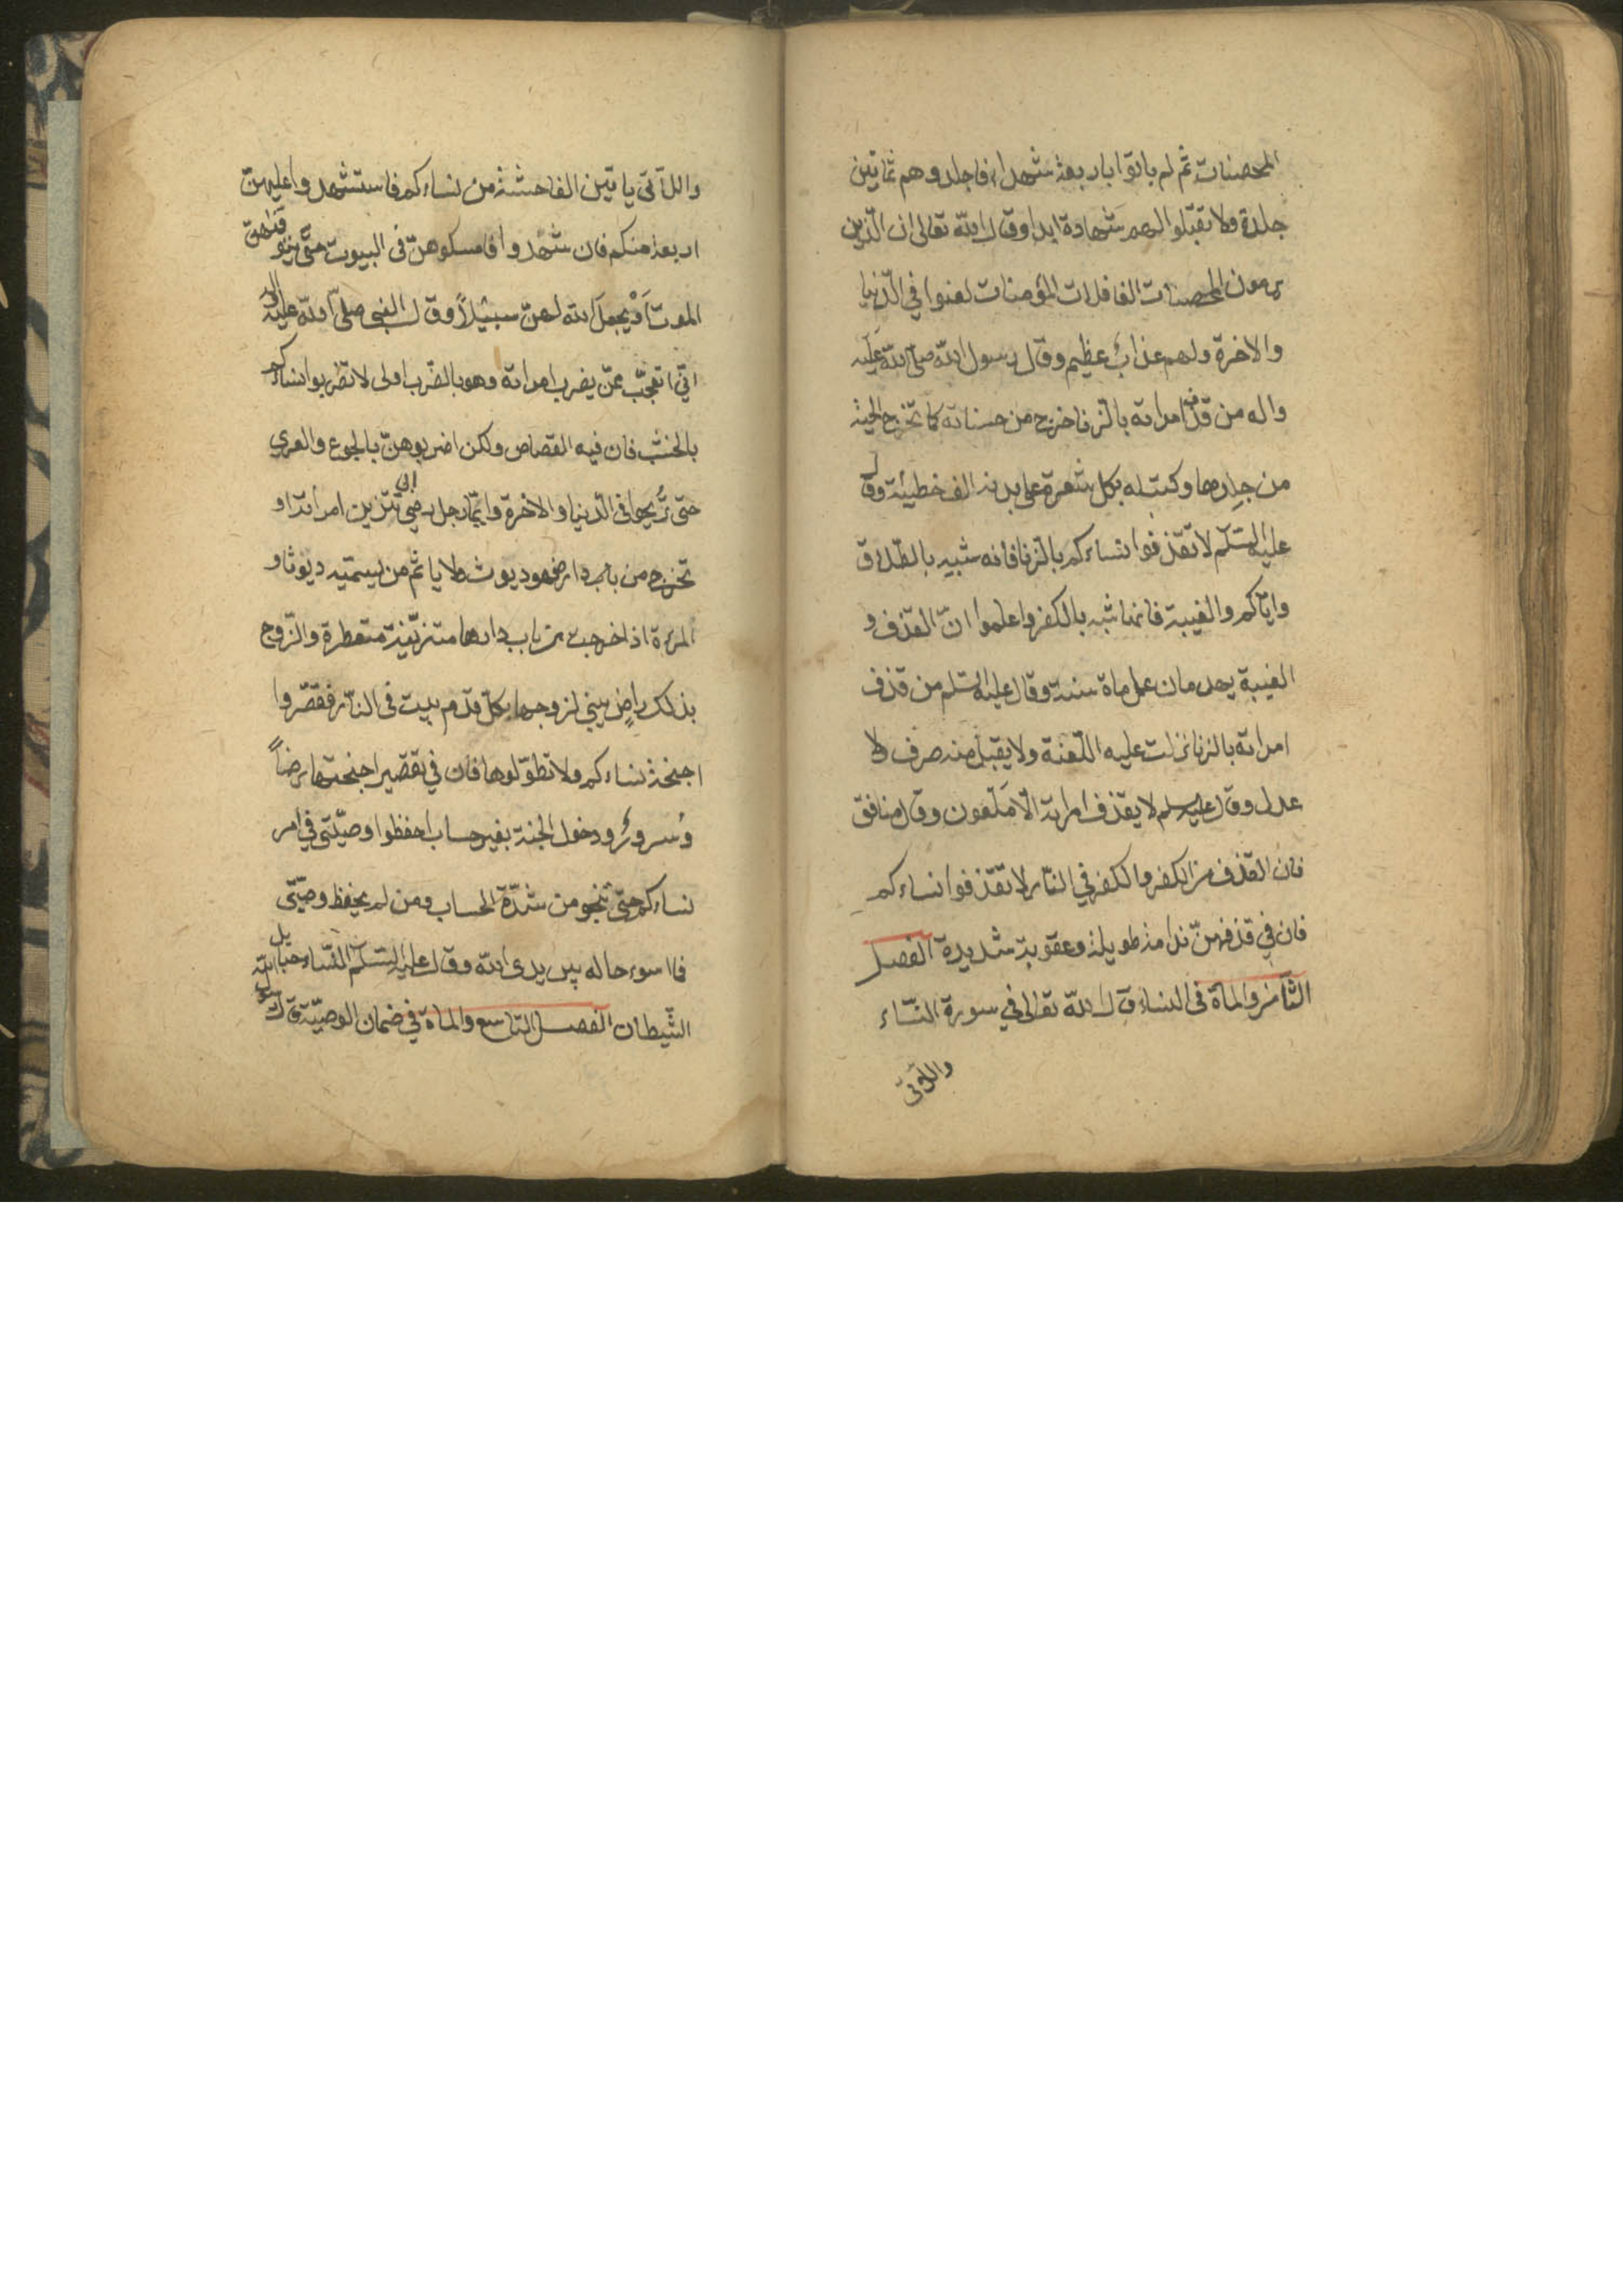 المحصنات ثم لم ياتوا باربعة شهداء فاجلدوهم ثمانين
جلدة ولا تقبلوا لهم شهادة ابدا وقال الله تعالى ان الّذين
يرمون المحصنات الغافلات المؤمنات لعنوا في الدّنيا
والاخرة ولهم عذابٌ عظيم وقال رسول الله صلّى الله عليه
واله من قذف امراته بالزنا خرج من حسناته كما تخرج الحيّة
من جلدها وكتب له بكل شعرة على بدنه الف خطيئة وقال
عليه السّلم لا تقذفوا نساءكم بالزنا فانه شبيه بالطّلاق
وايّاكم والغيبة فانما شبه بالكفر واعلموا انّ القذف و
الغيبة يهدمان عمل ماة سنة وقال عليه السّلم من قذف
امراته بالزنا نزلت عليه اللّعنة ولا يقبل منه صرف ولا
عدل وقال عليه السلم لا يقذف امراته الّا ملعون وقال منافق
فان القذف من الكفر والكفر في النّار لا تقذفوا نساءكم
فان في قذفهنّ ندامة طويلة وعقوبة شديدة الفصل
الثّامن والماة في النساء قال الله تعالى في سورة النّساء
واللّاتي
واللّاتي ياتين الفاحشة من نساءكم فاستشهدوا عليهنّ
اربعة منكم فان شهدوا فامسكوهنّ في البيوت حتّى يتوفّاهنّ
الموت اَوْ يجعلَ الله لهنّ سبيلاً وقال النبي صلّى الله عليه واله
انّي اتعجّب ممّن يضرب امراته وهو بالضّرب اولى لا تضربوا نساءكم
بالخشب فان فيه القصاص ولكن اضربوهنّ بالجوع والعري
حتى تُريحوا في الدّنيا والاخرة وايّما رجل رضي ان تتزين امراته او
تخرج من باب دارها فهو ديوث ولا ياثم من يسمّيه ديوثا و
المرءة اذا خرجت من باب دارها متزيّنة متعطرة والزّوج
بذلك راضٍ بني لزوجها بكلّ قدم بيت في النّار فقصّروا
اجنحة نساءكم ولا تطوّلوها فان في تقصير اجنحتها رضاً
وُسرورٌ ودخول الجنة بغير حساب احفظوا وصيّتي في امر
نساءكم حتّى تنجو من شدّة الحساب ومن لم يحفظ وصيّتي
فما اسوء حاله بين يدي الله وقال عليه السّلم النّساء حبايل
الشّيطان الفصل التاسع والماة في ضمان الوصيّة قال رسول الله